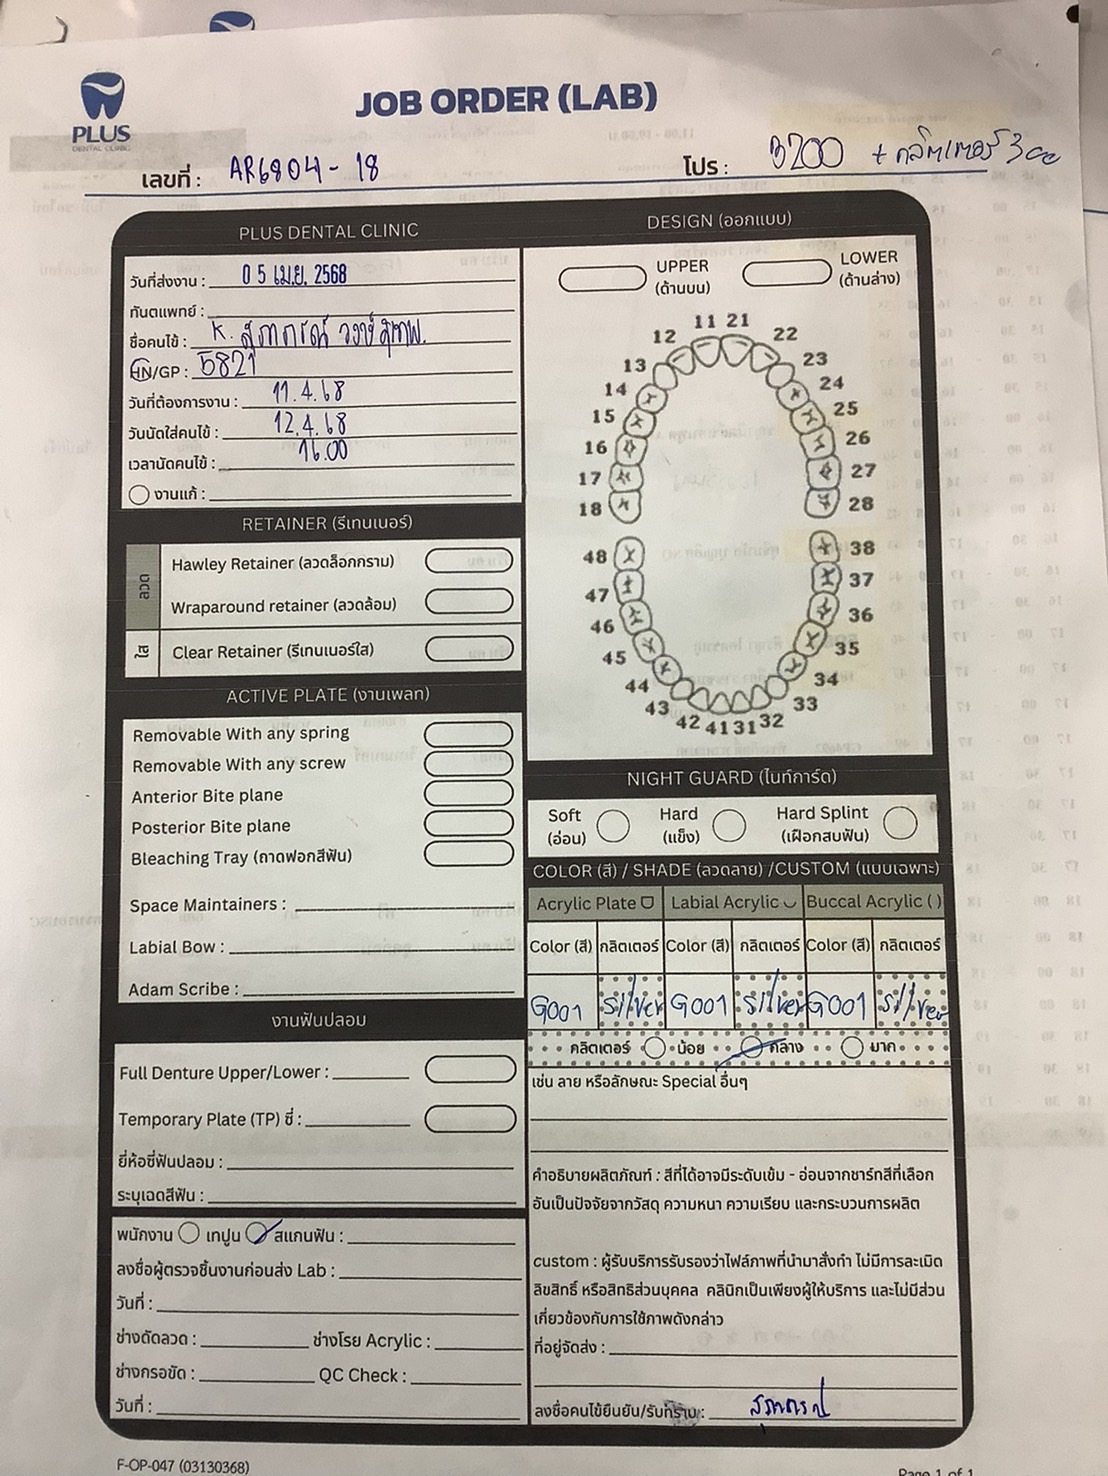 PLUS
DENTAL CLINIC
JOB ORDER (LAB)
เลขที่ : AR6804-18
โปร : 3200 + กลิตเตอร์ 300
PLUS DENTAL CLINIC
วันที่ส่งงาน : 05 เม.ย. 2568
ทันตแพทย์ :
ชื่อคนไข้ : K.
HN/GP : 5821
วันที่ต้องการงาน : 11.4.68
วันนัดใส่คนไข้ : 12.4.68
เวลานัดคนไข้ : 16.00
งานแก้ :
RETAINER (รีเทนเนอร์)
ลวด
Hawley Retainer (ลวดล็อกกราม)
Wraparound retainer (ลวดล้อม)
ใส
Clear Retainer (รีเทนเนอร์ใส)
ACTIVE PLATE (งานเพลท)
Removable With any spring
Removable With any screw
Anterior Bite plane
Posterior Bite plane
Bleaching Tray (ถาดฟอกสีฟัน)
Space Maintainers :
Labial Bow :
Adam Scribe :
งานฟันปลอม
Full Denture Upper/Lower :
Temporary Plate (TP) ซี่ :
ยี่ห้อซี่ฟันปลอม :
ระบุเฉดสีฟัน :
พนักงาน เทปูน สแกนฟัน :
ลงชื่อผู้ตรวจชิ้นงานก่อนส่ง Lab :
วันที่ :
ช่างดัดลวด : ช่างโรย Acrylic :
ช่างกรอขัด : QC Check :
วันที่ :
DESIGN (ออกแบบ)
UPPER (ด้านบน)
LOWER (ด้านล่าง)
11 21
12 22
13 23
14 24
15 25
16 26
17 27
18 28
48 38
47 37
46 36
45 35
44 34
43 33
42 41 31 32
NIGHT GUARD (ไนท์การ์ด)
Soft (อ่อน)
Hard (แข็ง)
Hard Splint (เฝือกสบฟัน)
COLOR (สี) / SHADE (ลวดลาย) /CUSTOM (แบบเฉพาะ)
Acrylic Plate Labial Acrylic Buccal Acrylic ( )
Color (สี) กลิตเตอร์ Color (สี) กลิตเตอร์ Color (สี) กลิตเตอร์
G001 Silver G001 Silver G001 Silver
กลิตเตอร์ น้อย กลาง มาก
เช่น ลาย หรือลักษณะ Special อื่นๆ
คำอธิบายผลิตภัณฑ์ : สีที่ได้อาจมีระดับเข้ม - อ่อนจากชาร์ทสีที่เลือก
อันเป็นปัจจัยจากวัสดุ ความหนา ความเรียบ และกระบวนการผลิต
custom : ผู้รับบริการรับรองว่าไฟล์ภาพที่นำมาสั่งทำ ไม่มีการละเมิด
ลิขสิทธิ์ หรือสิทธิส่วนบุคคล คลินิกเป็นเพียงผู้ให้บริการ และไม่มีส่วน
เกี่ยวข้องกับการใช้ภาพดังกล่าว
ที่อยู่จัดส่ง :
ลงชื่อคนไข้ยืนยัน/รับทราบ :
F-OP-047 (03130368)
Page 1 of 1